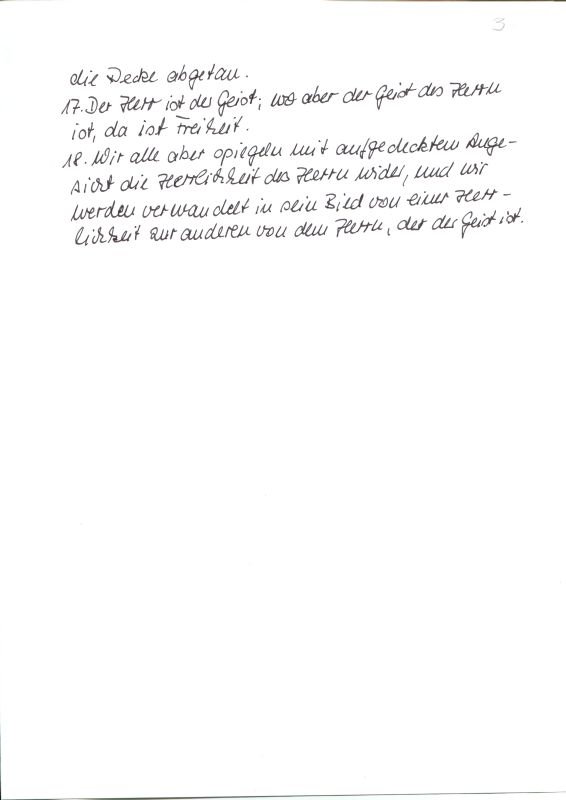 3
die Decke abgetan.
17. Der Herr ist der Geist; wo aber der Geist des Herrn
ist, da ist Freiheit.
18. Wir alle aber spiegeln mit aufgedecktem Ange-
sicht die Herrlichkeit des Herrn wider, und wir
werden verwandelt in sein Bild von einer Herr-
lichkeit zur anderen von dem Herrn, der der Geist ist.